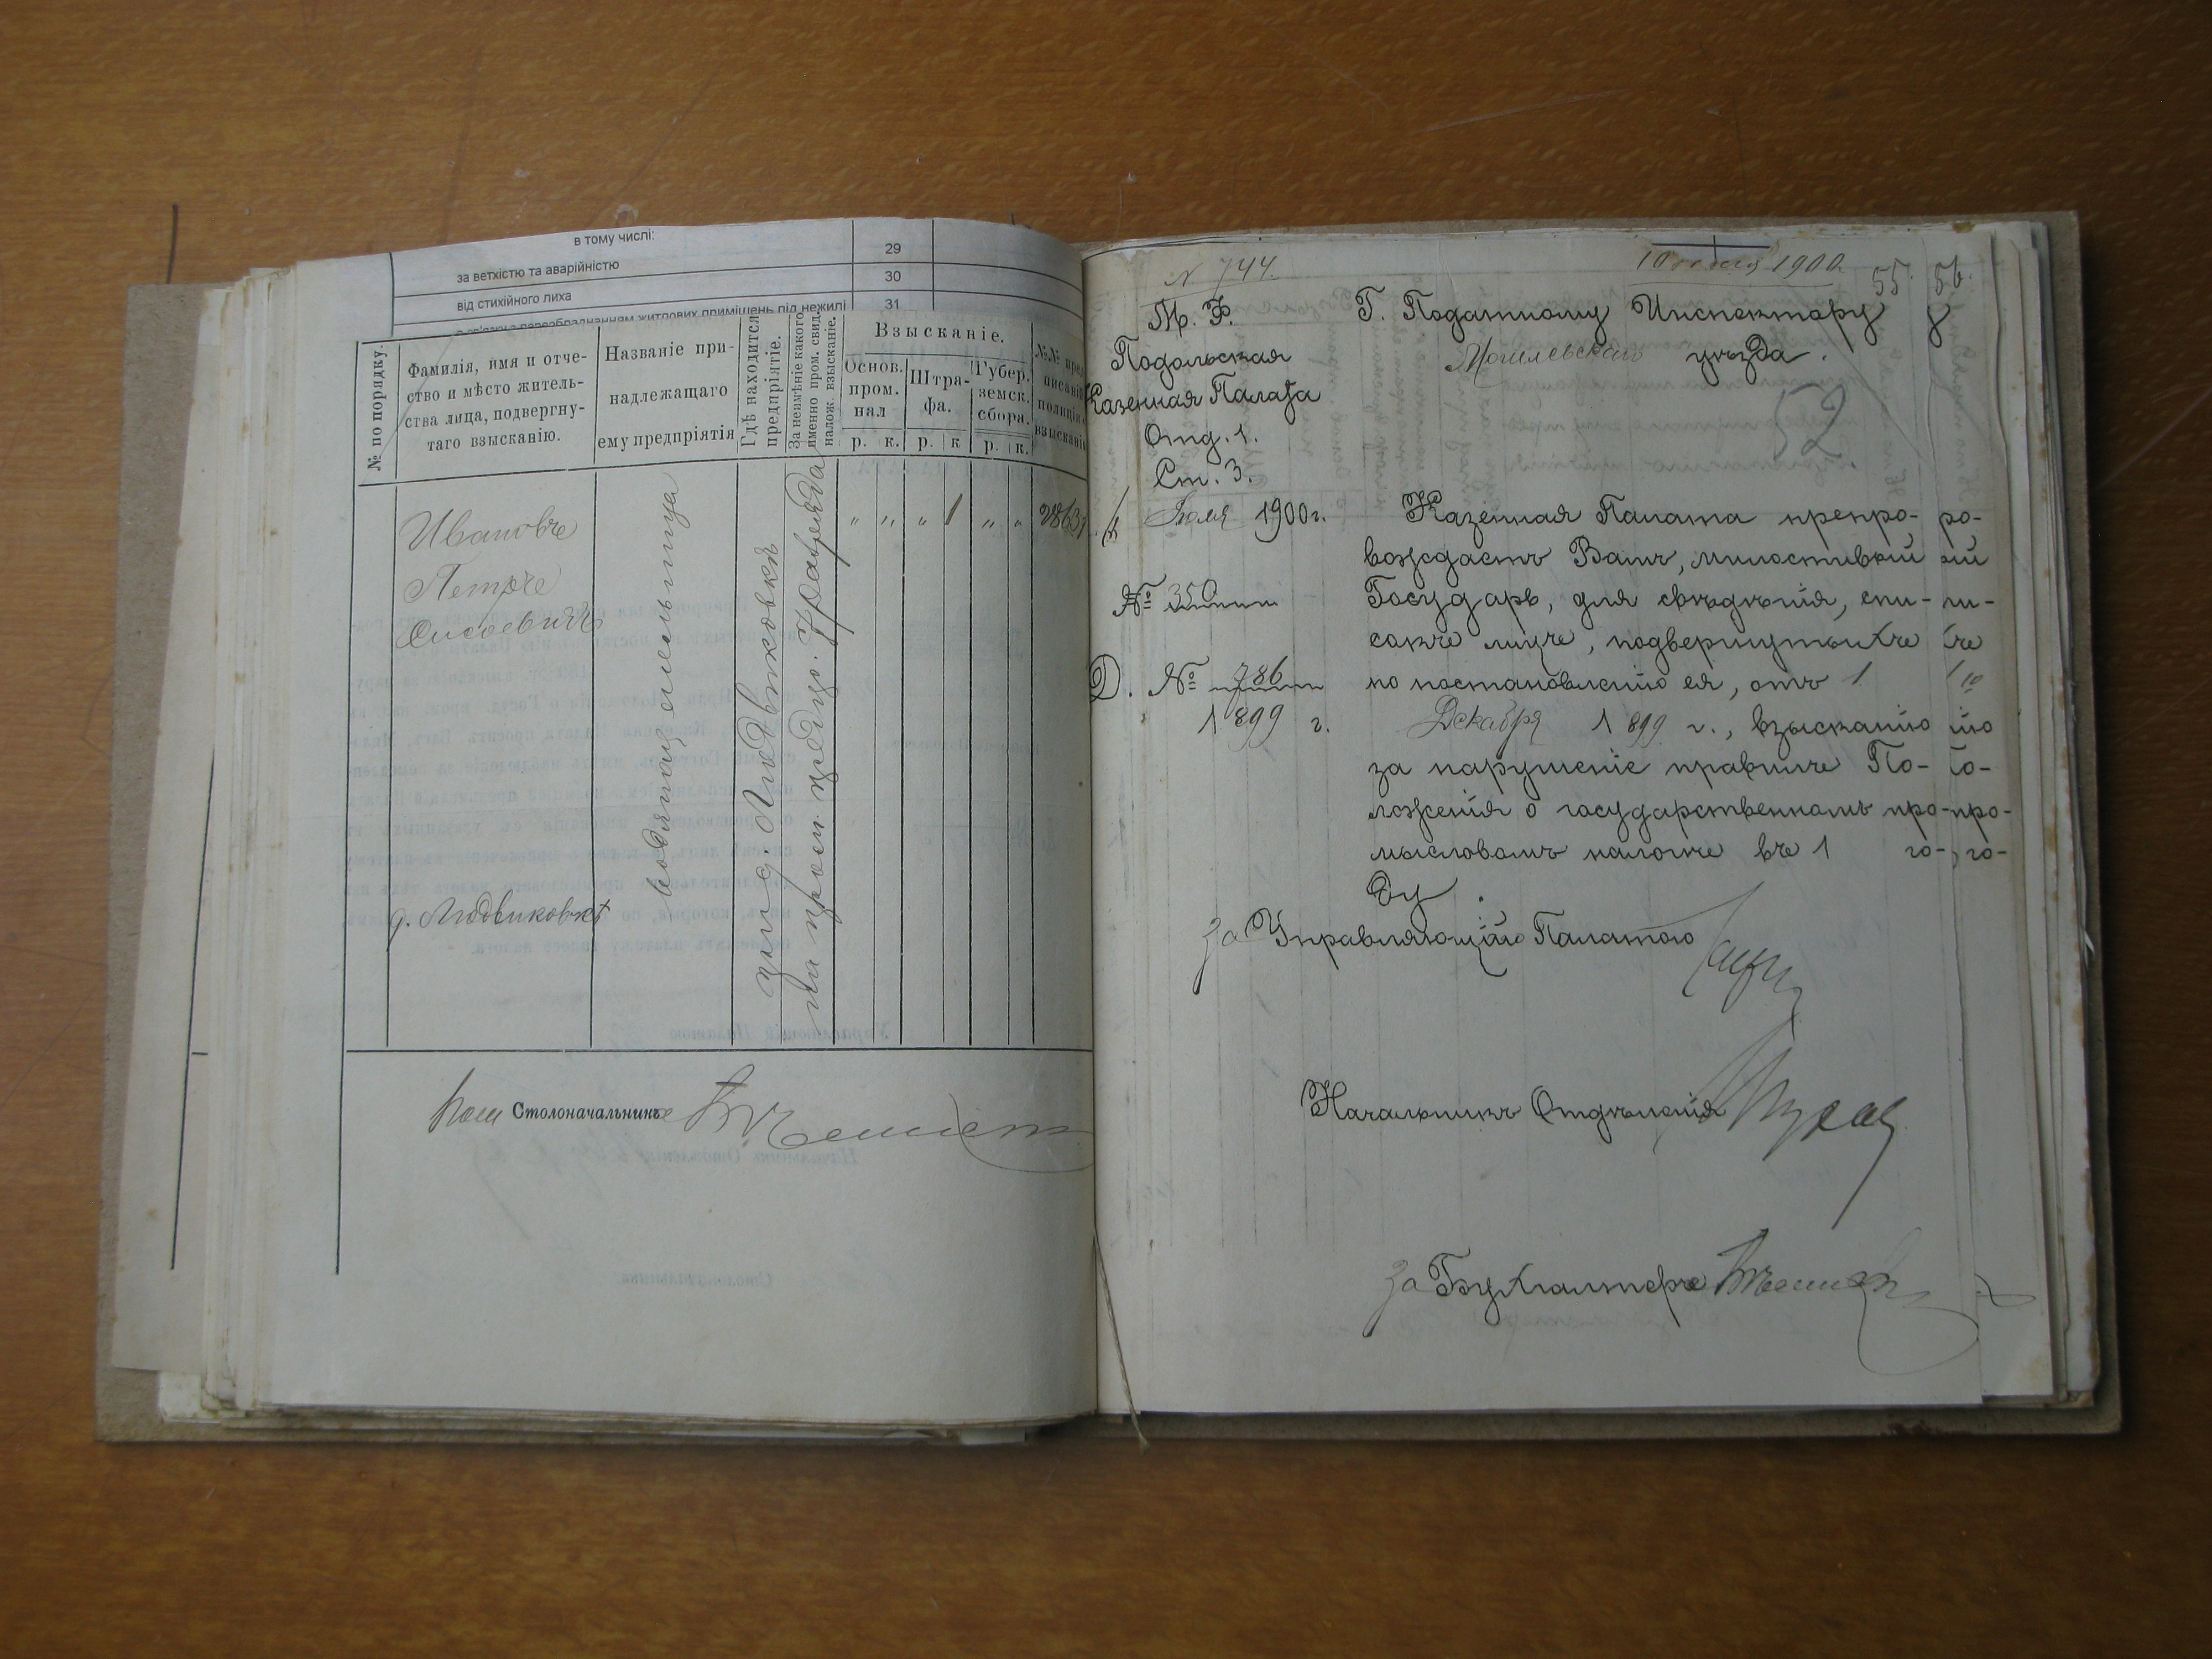 в тому числі:
29
за ветхістю та аварійністю
30
від стихійного лиха
31
№ по порядку.
Фамилія, имя и отче-
ство и мѣсто житель-
ства лица, подвергну-
таго взысканію.
Названіе при-
надлежащаго
ему предпріятія
Гдѣ находится
предпріятіе.
За неимѣніе какого
именно пром. свид.
налож. взысканіе.
Взысканіе.
Основ.
пром.
нал
Штра-
фа.
Губер.
земск.
сбора.
р. к. р. к р. к.
Ивановъ
Петръ
д. Людвиковка
водяная мельница
при д. Людвиковкѣ
на пром. предпр. разряда
" " " 1 " "
Столоначальникъ
N 744.
1900
55.
56.
М. Ф.
Подольская
Казенная Палата
Отд. 1.
Ст. 3.
Іюля 1900 г.
№ 350
Д. № 786
1899 г.
Г. Податному Инспектору
Могилевскаго уѣзда.
52
Казенная Палата препро-
вождаетъ Вамъ, милостивый
Государь, для свѣдѣнія, спи-
сокъ лицъ, подвергнутыхъ
по постановленію ея, отъ 1
Декабря 1899 г., взысканію
за нарушеніе правилъ По-
ложенія о государственномъ про-
мысловомъ налогѣ въ 1 го-
ду.
За Управляющій Палатою
Начальникъ Отдѣленія
За Бухгалтеръ